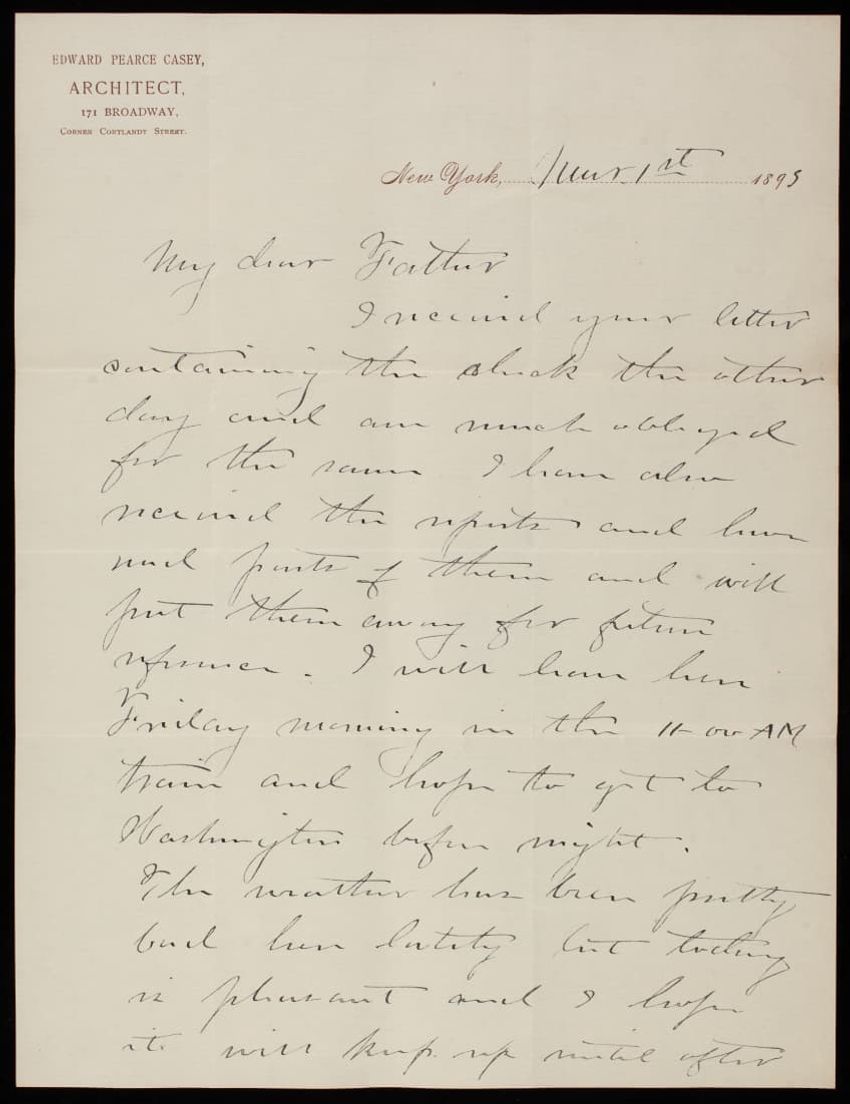 EDWARD PEARCE CASEY,
ARCHITECT,
171 BROADWAY,
CORNER CORTLANDT STREET.
New York, Mar. 1st 1893
My dear Father
I received your letter
containing the check the other
day and am much obliged
for the same. I have also
received the reports and have
read parts of them and will
put them away for future
reference. I will leave here
Friday morning in the 11-00 AM
train and hope to get to
Washington before night.
The weather has been pretty
bad here lately but today
is pleasant and I hope
it will keep up until after